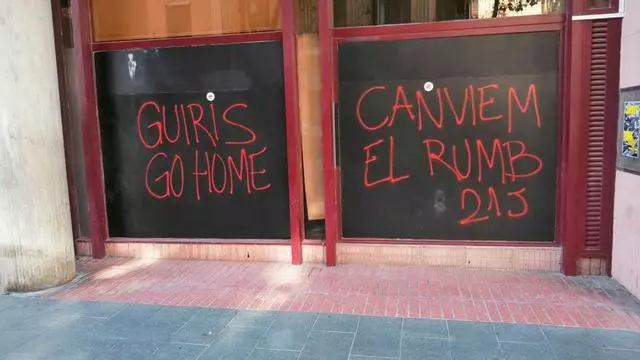 GUIRIS
GO HOME
CANVIEM
EL RUMB
21J